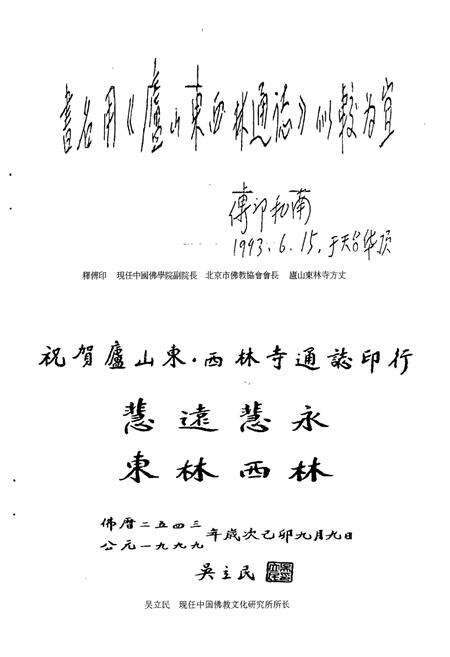 書名用《廬山東西林通誌》似較为宜
傳印和南
1993.6.15.于天台华顶
釋傳印 現任中國佛學院副院長 北京市佛教協會會長 廬山東林寺方丈
祝賀廬山東·西林寺通誌印行
慧遠慧永
東林西林
佛曆二五四三
公元一九九九年歲次己卯九月九日
吳立民
吴立民 现任中国佛教文化研究所所长